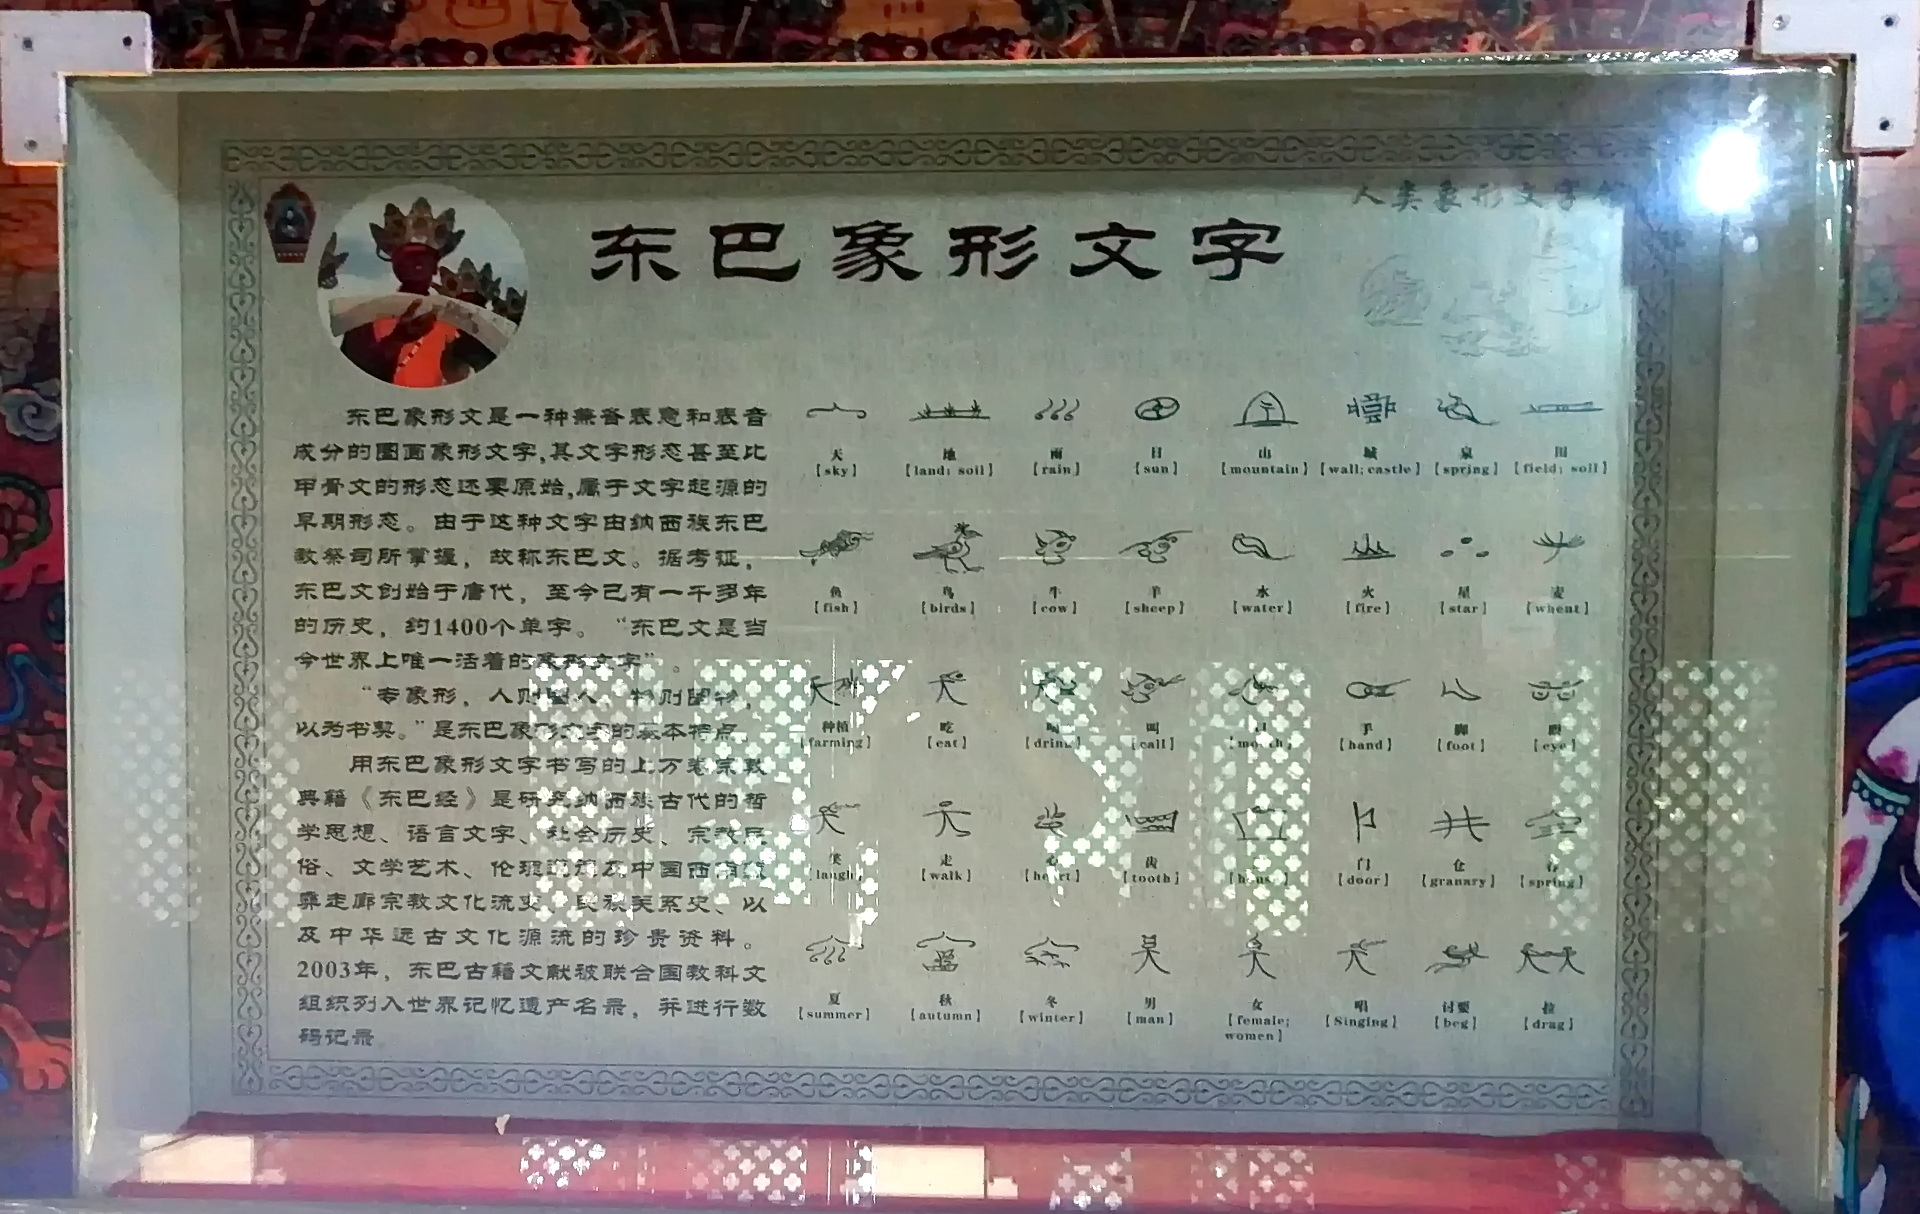 人类象形文字
东巴象形文字
东巴象形文是一种兼备表意和表音
成分的图画象形文字,其文字形态甚至比
甲骨文的形态还要原始,属于文字起源的
早期形态。由于这种文字由纳西族东巴
教祭司所掌握，故称东巴文。据考证，
东巴文创始于唐代，至今已有一千多年
的历史，约1400个单字。“东巴文是当
今世界上唯一活着的象形文字”。
“专象形，人则图人，物则图物，
以为书契。”是东巴象形文字的基本特点
用东巴象形文字书写的上万卷宗教
典籍《东巴经》是研究纳西族古代的哲
学思想、语言文字、社会历史、宗教民
俗、文学艺术、伦理道德及中国西南藏
彝走廊宗教文化流变、民族关系史、以
及中华远古文化源流的珍贵资料。
2003年，东巴古籍文献被联合国教科文
组织列入世界记忆遗产名录，并进行数
码记录
天 地 雨 日 山 城 泉 田
[sky] [land; soil] [rain] [sun] [mountain] [wall; castle] [spring] [field; soil]
鱼 鸟 牛 羊 水 火 星 麦
[fish] [birds] [cow] [sheep] [water] [fire] [star] [wheat]
种植 吃 喝 叫 口 手 脚 眼
[farming] [eat] [drink] [call] [mouth] [hand] [foot] [eye]
笑 走 心 齿 门 仓 春
[laugh] [walk] [heart] [tooth] [house] [door] [granary] [spring]
夏 秋 冬 男 女 唱 讨要 拉
[summer] [autumn] [winter] [man] [female; women] [Singing] [beg] [drag]